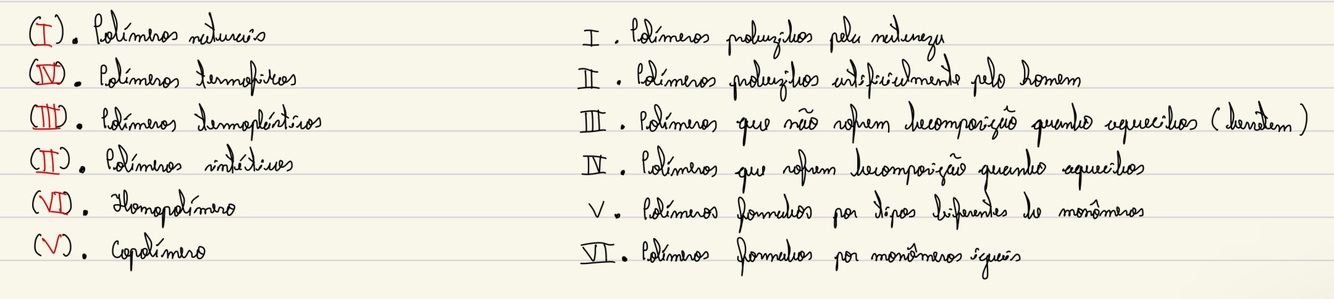 (I). Polímeros naturais
(IV). Polímeros termofixos
(III). Polímeros termoplásticos
(II). Polímeros sintéticos
(VI). Homopolímero
(V). Copolímero
I. Polímeros produzidos pela natureza
II. Polímeros produzidos artificialmente pelo homem
III. Polímeros que não sofrem decomposição quando aquecidos (derretem)
IV. Polímeros que sofrem decomposição quando aquecidos
V. Polímeros formados por tipos diferentes de monômeros
VI. Polímeros formados por monômeros iguais